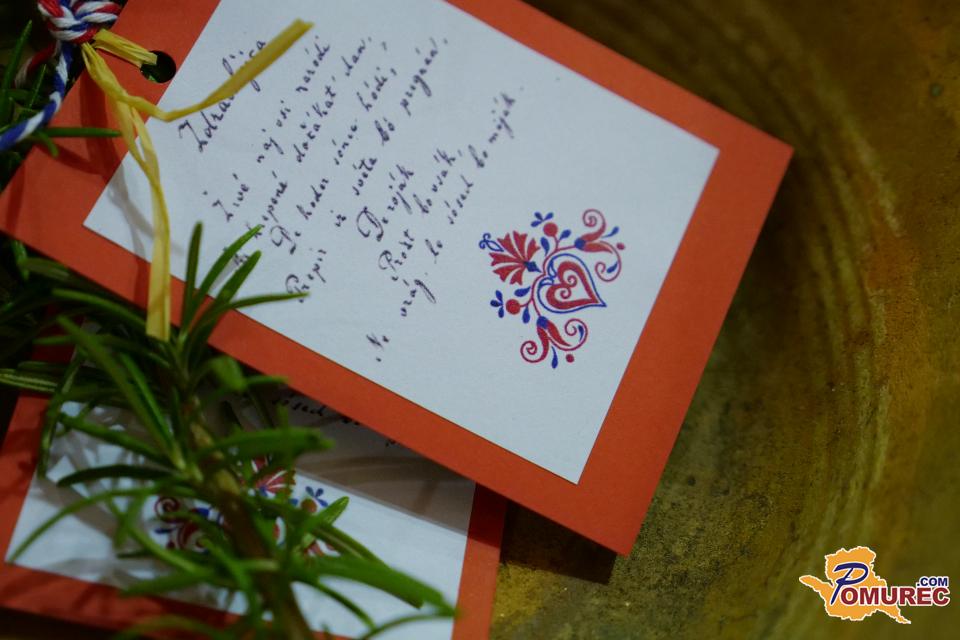 Zdravljica
Živé naj vsi národi
Ki hrepené dočákat' dan,
De koder sónce hódi,
Prepir iz svéta bó pregnán,
De roják
Prost bo vsák,
Ne vrág, le sósed bo meják.
sósed
POMUREC
.COM